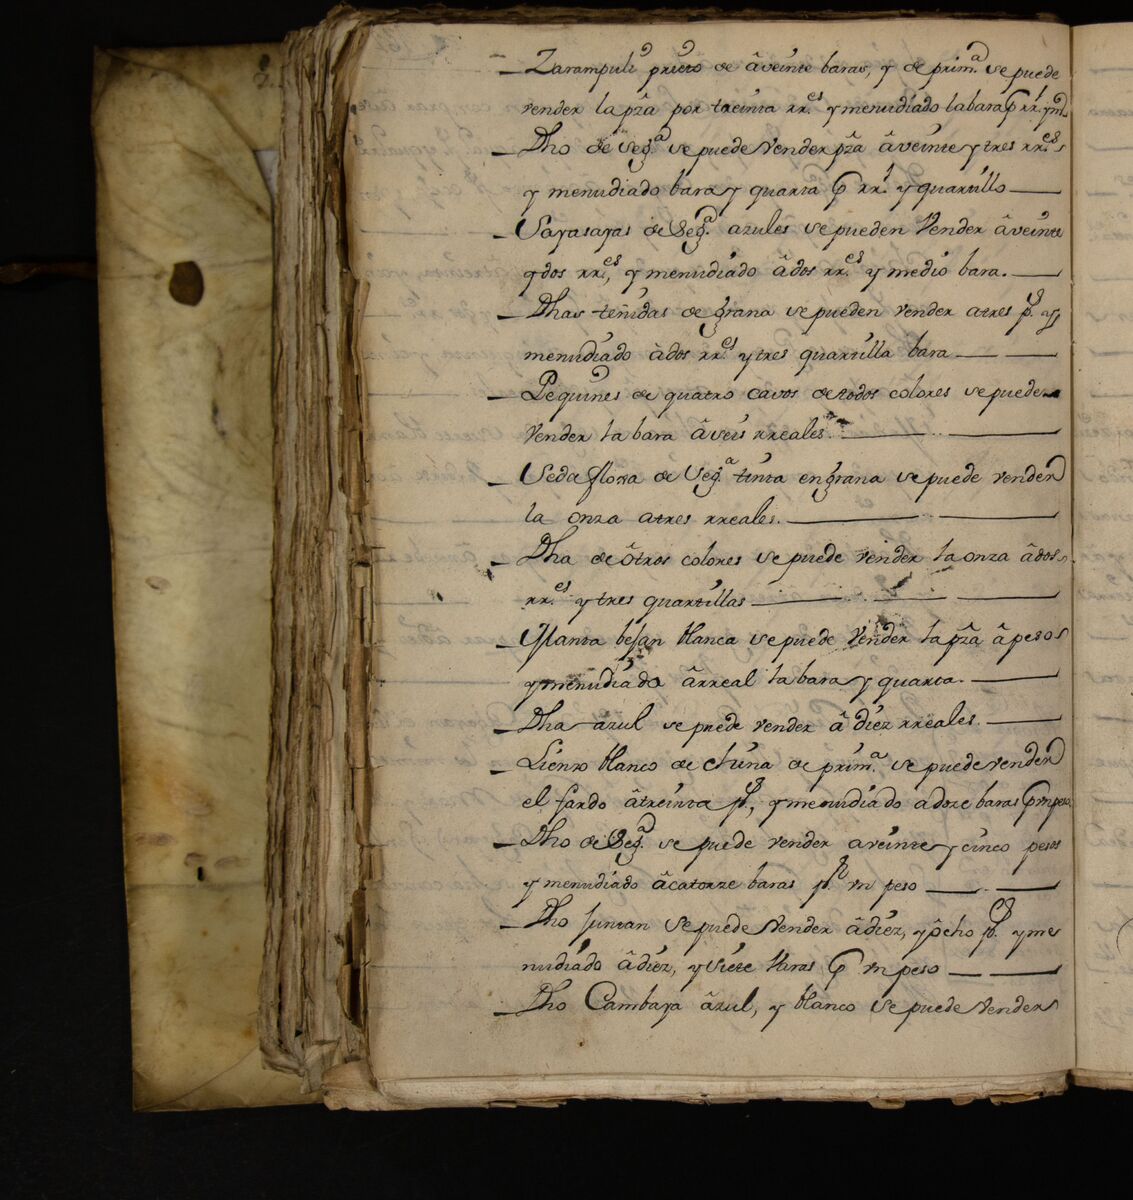 Zarampuli prieto de â veinte baras, y de prim.ª se puede
vender la pza por treinta rr.es y menudiado la bara Ꝑ rl. y m.º
Dho de Seg.ª se puede Vender pza â veinte y tres rr.es
y menudiado bara y quarta Ꝑ rl. y quartillo
Sayasayas de Seg.ª azules se pueden Vender â veinte
y dos rr.es, y menudiado â dos rr.es y medio bara.
Dhas teñidas de grana se pueden vender a tres p.s y
menudiado â dos rr.es y tres quartilla bara
Pequines de quatro cavos de todos colores se pueden
vender la bara â seis rreales.
Seda floxa de Seg.ª tinta en grana se puede vender
la onza a tres rreales.
Dha de ôtros colores se puede vender la onza â dos
rr.es y tres quartillas
Manta besan blanca se puede Vender la pza â pesos
y menudiada ârreal la bara y quarta.
Dha azul se puede vender â diez rreales.
Lienzo blanco de china de prim.ª se puede vender
el fardo â treinta p.s, y menudiado a doze baras Ꝑ vn peso.
Dho de Seg.ª se puede vender a veinte y cinco pesos
y menudiado â catorze baras p.r vn peso
Dho Juntan Se puede Vender â diez, y ôcho p.s y me
nudiado â diez, y siete Varas Ꝑ vn peso
Dho Cambaya âzul, y blanco se puede Vender